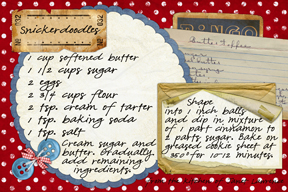 Snickerdoodles
1 cup softened butter
1 1/2 cups sugar
2 eggs
2 3/4 cups flour
2 tsp. cream of tarter
1 tsp. baking soda
1 tsp. salt
Cream sugar and
butter. Gradually
add remaining
ingredients.
BINGO
Shape
into 1 inch balls
and dip in mixture
of 1 part cinnamon to
2 parts sugar. Bake on
greased cookie sheet at
350° for 10-12 minutes.